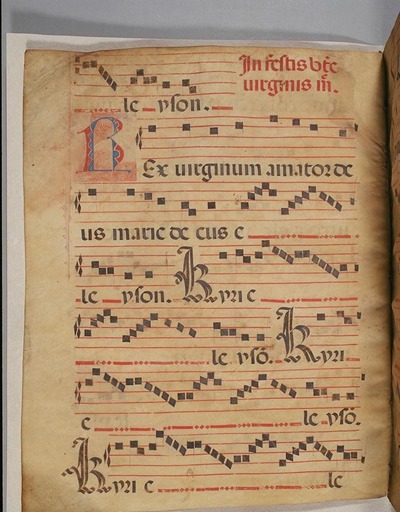 In festis bt̄e
uirginis m̄.
le yson.
REx uirginum amator de
us marie de cus e
le yson. Kyri e
le ysō. Kyri
e le ysō.
Kyri e le